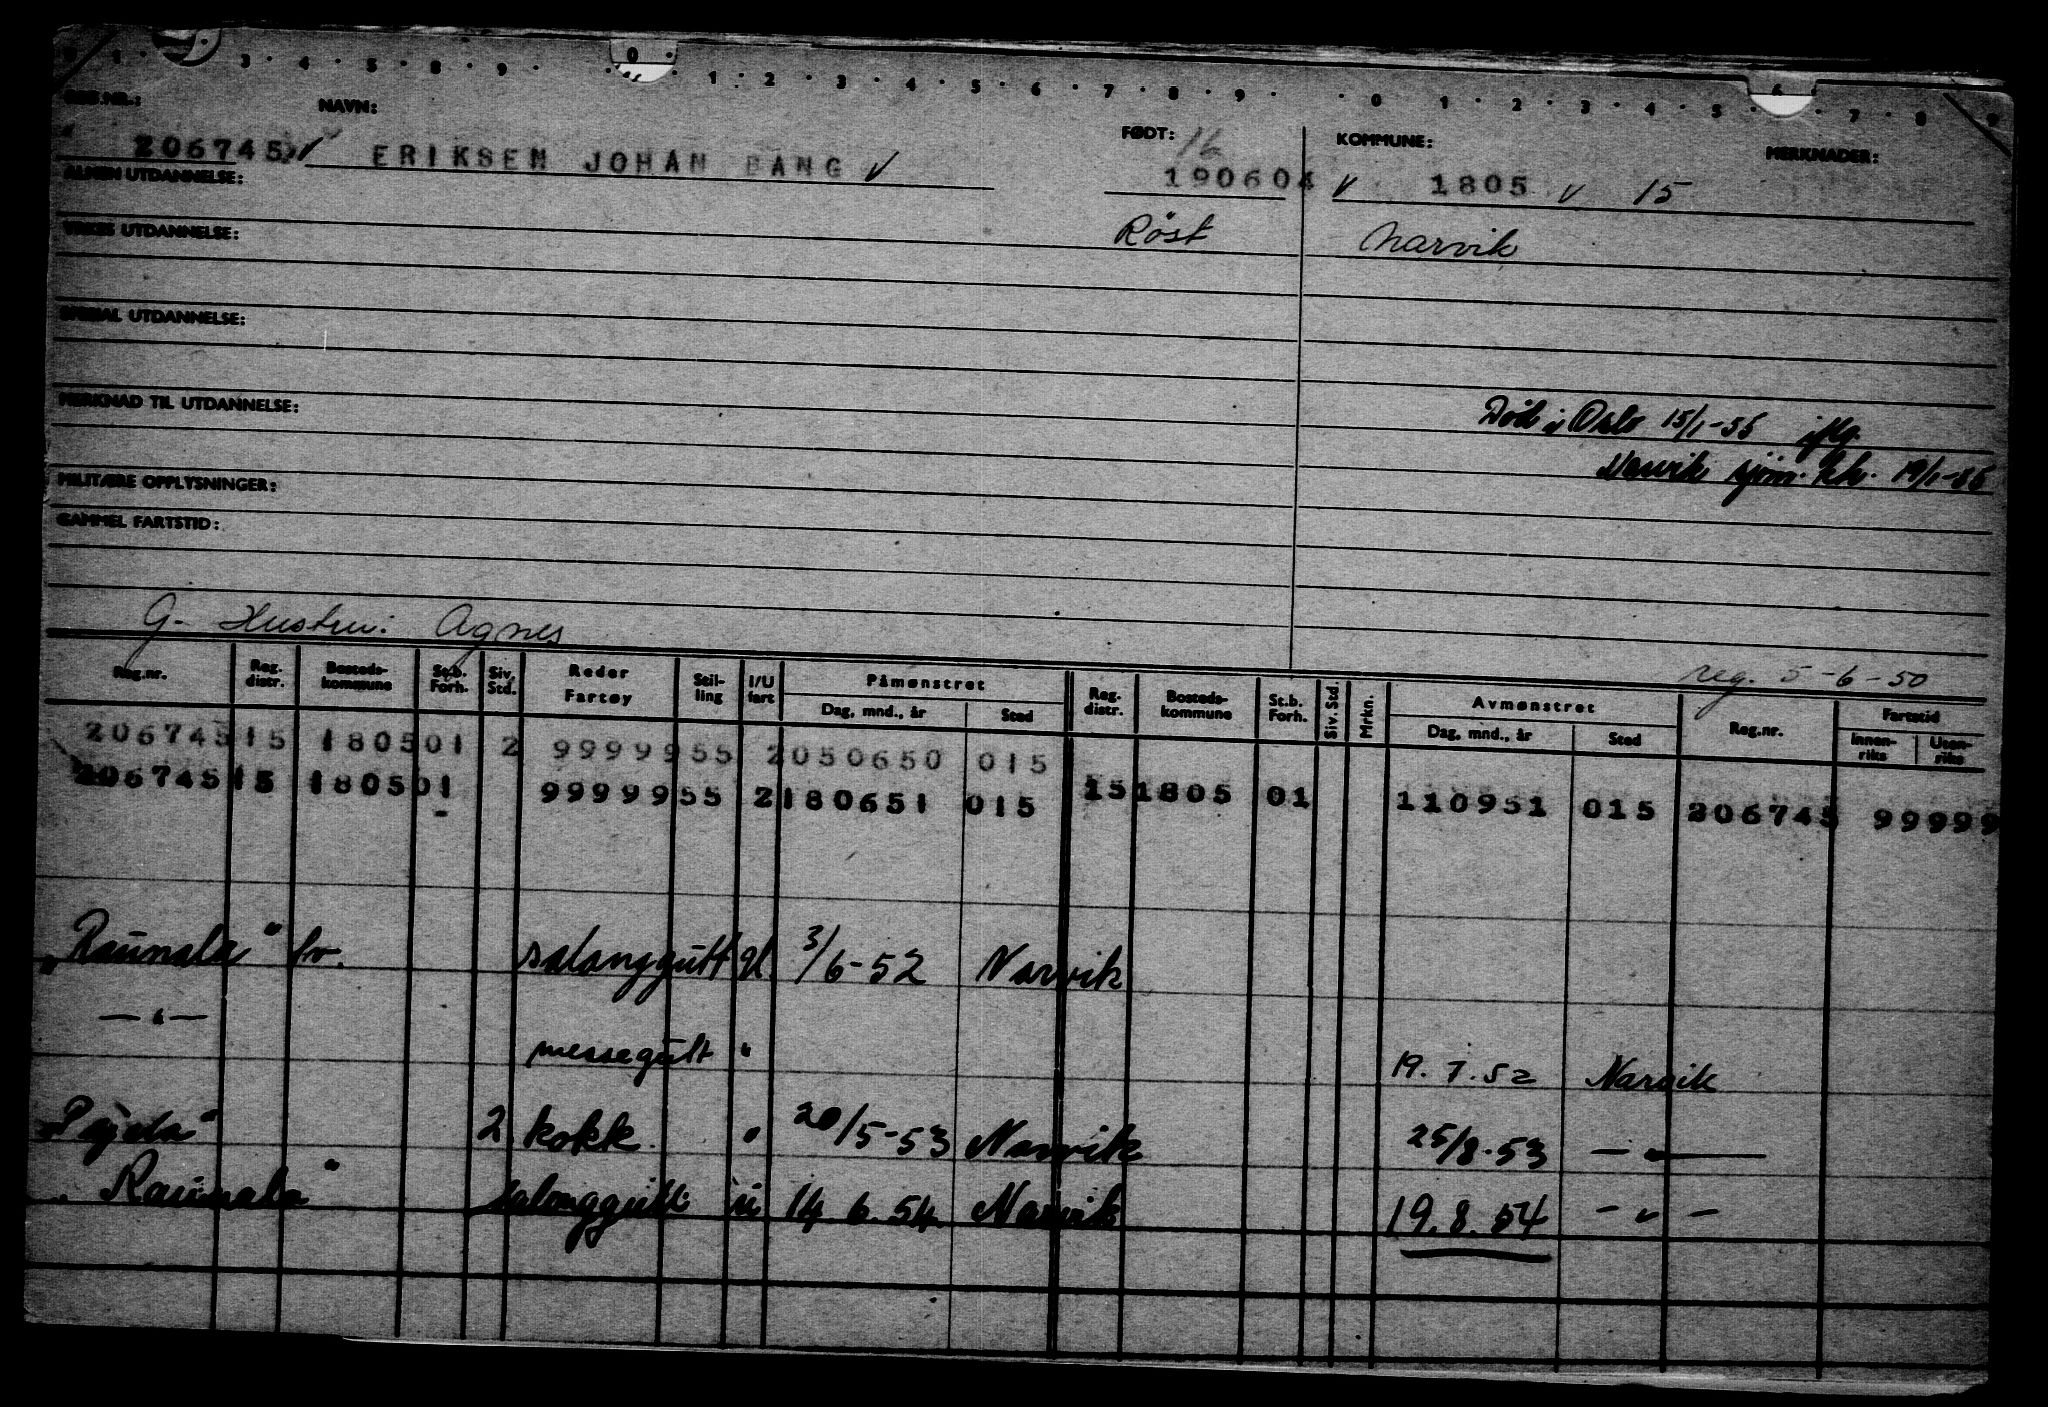 REG.NR.: NAVN: FØDT: KOMMUNE: MERKNADER:
16
206745 ERIKSEN JOHAN BANG 190604 1805 15
ALMEN UTDANNELSE:
Røst Narvik
YRKES UTDANNELSE:
SPESIAL UTDANNELSE:
MERKNAD TIL UTDANNELSE:
Død i Oslo 15/1-56 iflg.
Narvik sjøm. kk. 19/1-56
MILITÆRE OPPLYSNINGER:
GAMMEL FARTSTID:
G. Hustru: Agnes
reg. 5-6-50
Reg.nr. Reg. distr. Bosteds-kommune St.b. Forh. Siv. Std. Reder Fartøy Stil-ling I/U fart Påmønstret Dag, mnd., år Sted Reg. distr. Bosteds-kommune St.b. Forh. Siv. Std. Mrkn. Avmønstret Dag, mnd., år Sted Reg.nr. Fartstid Innen-riks Uten-riks
206745 15 1805 01 2 99999 55 2 050650 015
206745 15 1805 01 99999 55 2 180651 015 15 1805 01 110951 015 206745 99999
"Raunala" salonggutt U. 3/6-52 Narvik
—"— messegutt " 19.7.52 Narvik
"Pajala" 2 kokk " 20/5-53 Narvik 25/8-53 —"—
"Raunala" salonggutt u 14.6.54 Narvik 19.8.54 —"—